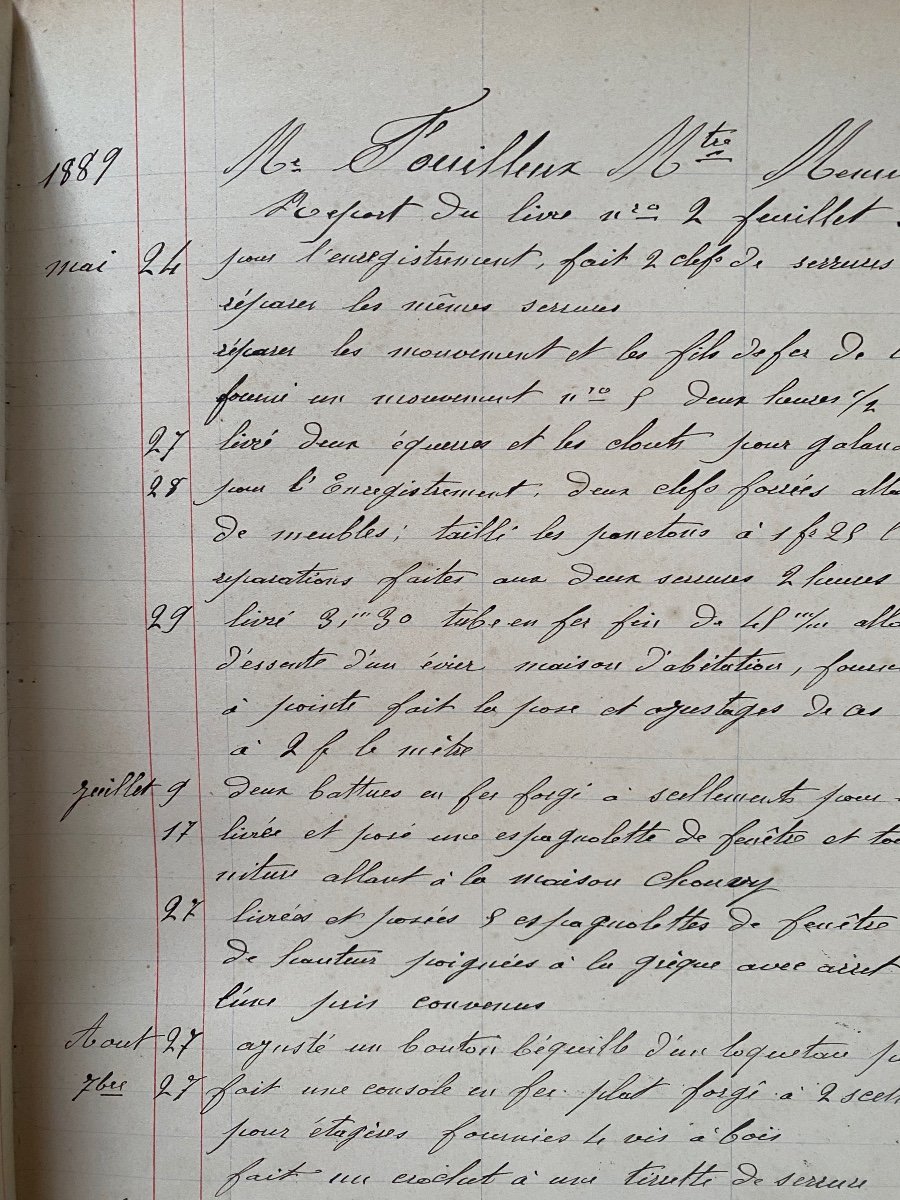 1889 Mr Fouilleux Mtre Menu
Report du livre nro 2 feuillet
mai 24 pour l'enregistrement, fait 2 clefs de serrures
réparer les mêmes serrures
réparer les mouvement et les fils de fer de
fourni un mouvement nro 5 deux heures 1/2
27 livré deux équerres et les clouts pour galan
28 pour l'Enregistrement, deux clefs forrées alla
de meubles; taillé les panetons à 1 fr 25
reparations faites aux deux serrures 2 heures
29 livré 3,m 30 tube en fer fin de 45 m/m alla
d'essente d'un évier maison d'abitation, fourn
à pointe fait la pose et ajustages de ces
à 2 f le mètre
juillet 9 deux battues en fer forgé à scellements pour
17 livrée et posé une espagnolette de fenêtre et tou
niture allant à la maison Chouvy
27 livrées et posées 5 espagnolettes de fenêtre
de hauteur poignées à la grèque avec arret
l'une prix convenus
Aout 27 ajusté un bouton béquille d'un loqueteau
7bre 27 fait une console en fer plat forgé à 2 scell
pour étagères fournies 4 vis à bois
fait un crochet à une tirette de serrure